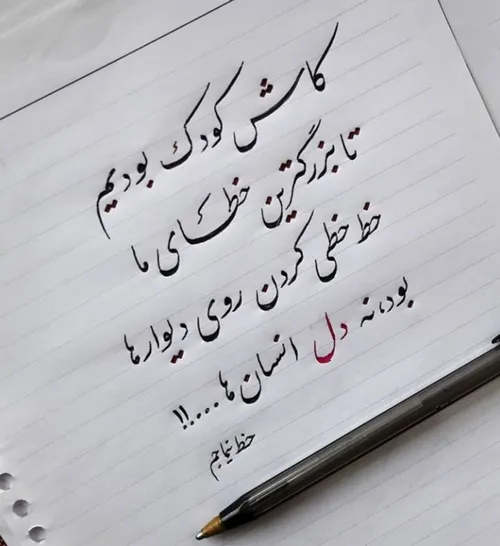 کاش کودک بودیم
تا بزرگترین خطای ما
خط خطی کردن روی دیوارها
بود، نه دل انسان ها....!!
خط